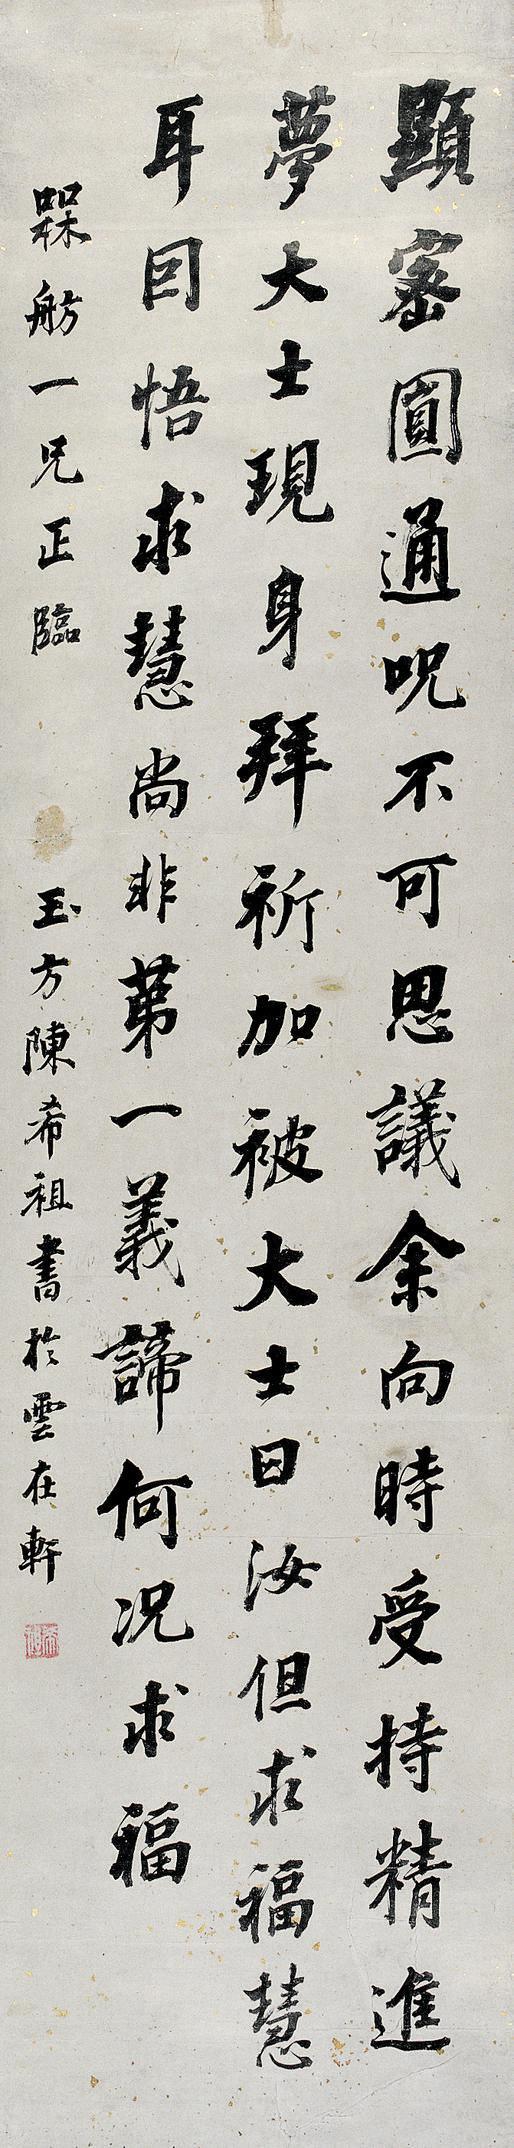 顯密圓通呪不可思議余向時受持精進
夢大士現身拜祈加被大士曰汝但求福慧
耳因悟求慧尚非苐一義諦何况求福
槑舫一兄正臨
玉方陳希祖書於雲在軒